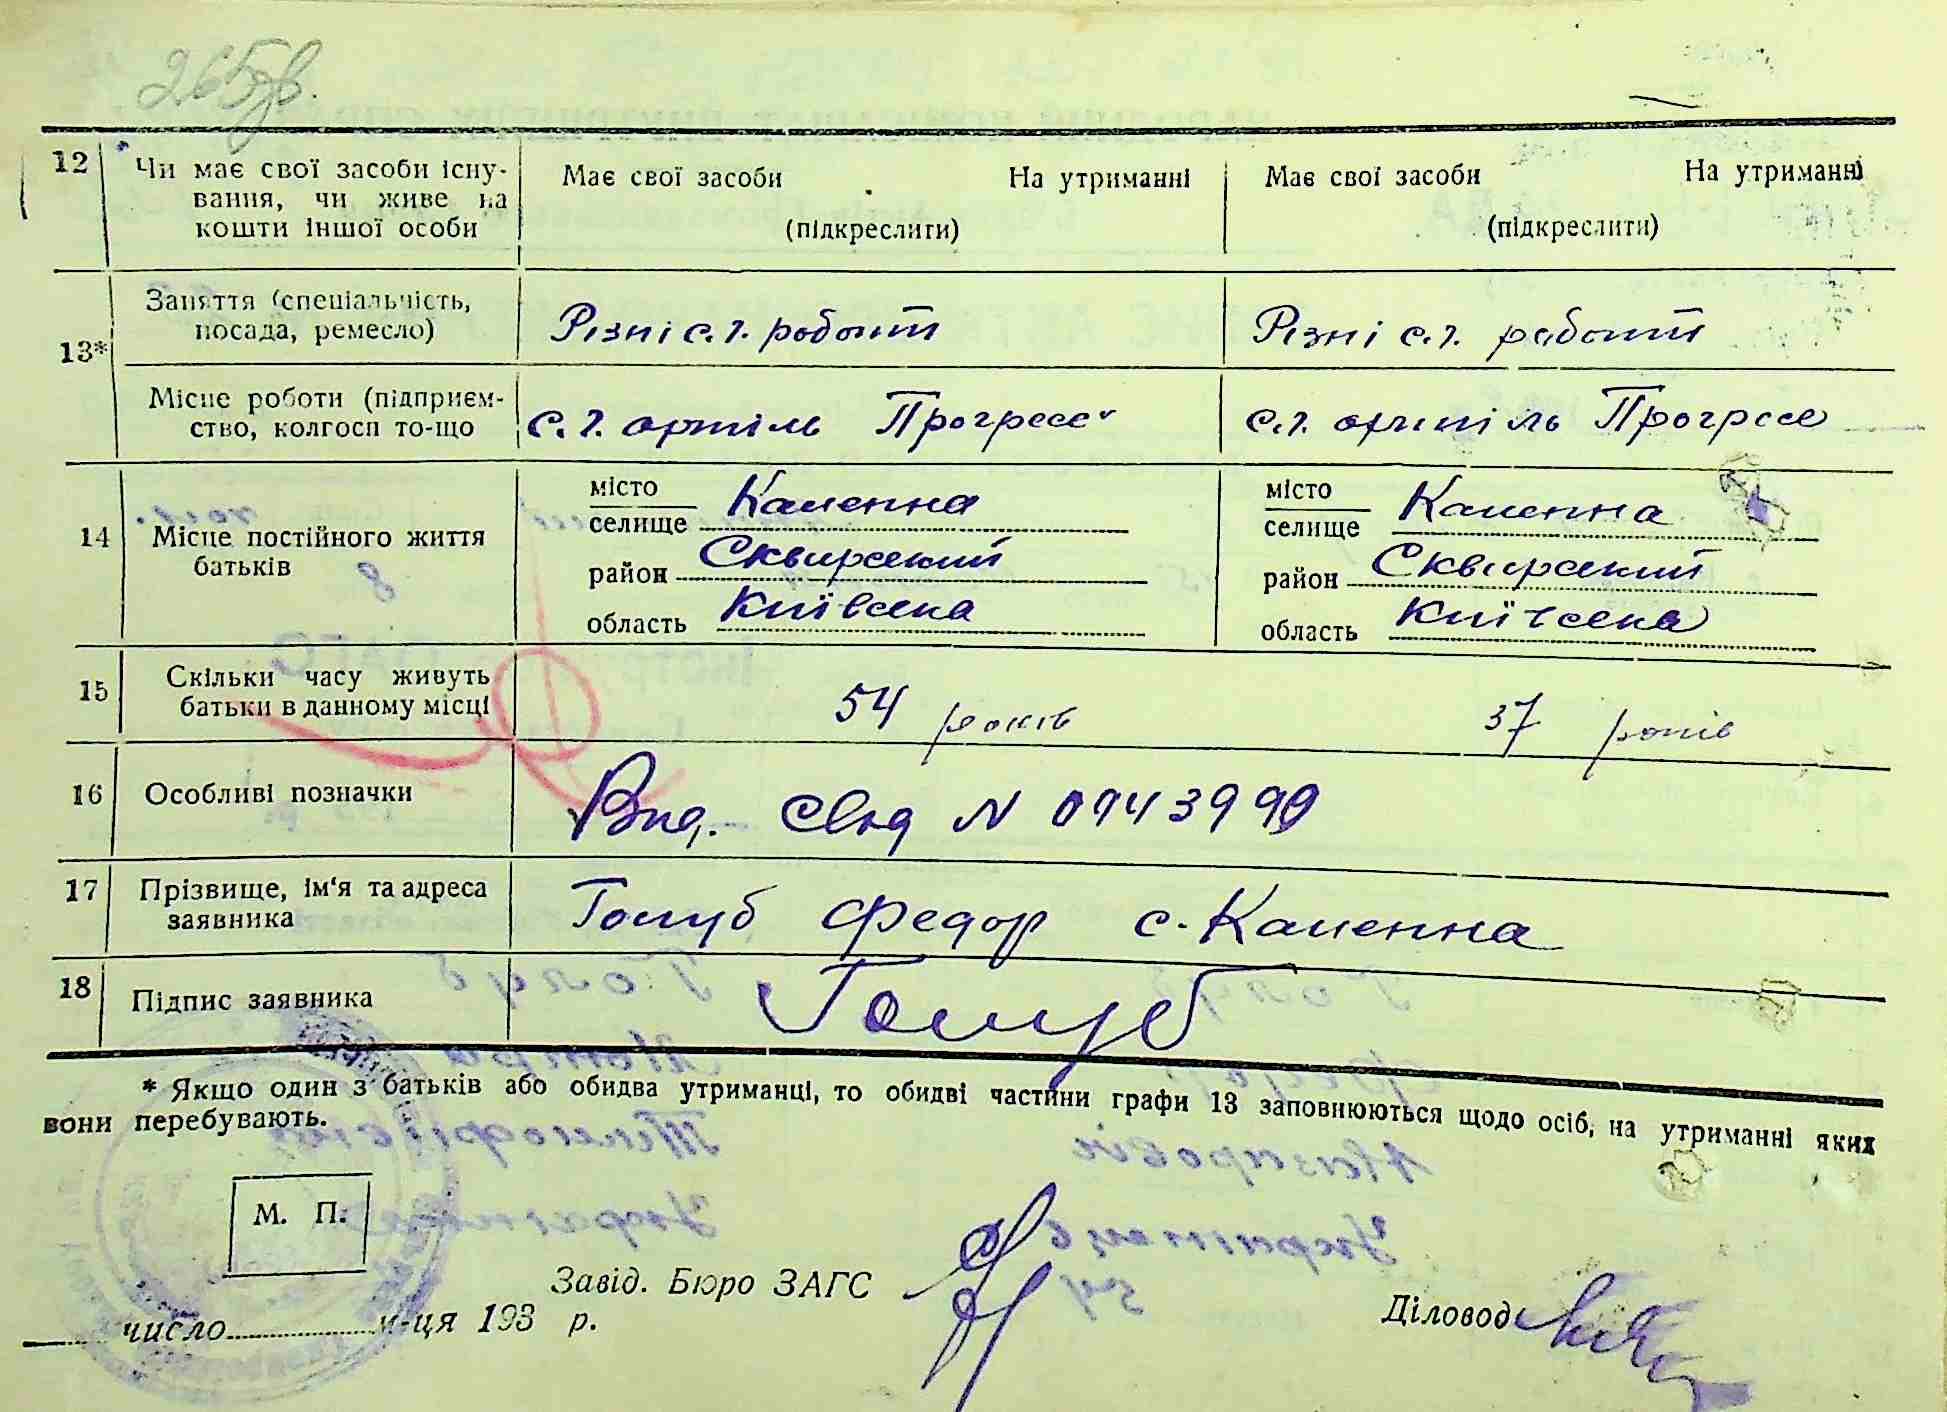 265зв.
12 Чи має свої засоби існу- Має свої засоби На утриманні Має свої засоби На утриманні
вання, чи живе на
кошти іншої особи (підкреслити) (підкреслити)
Заняття (спеціальність,
посада, ремесло) Різні с.г. роботи Різні с.г. роботи
13*
Місце роботи (підприєм-
ство, колгосп то-що с.г. артіль Прогресс с.г. артіль Прогресс
місто Каменна місто Каменна
селище селище
14 Місце постійного життя
батьків район Сквирский район Сквирский
область Київска область Київска
15 Скільки часу живуть
батьки в данному місці 54 років 37 років
16 Особливі позначки Вид. свид N 0943999
17 Прізвище, ім'я та адреса
заявника Голуб Федор с. Каменна
18 Підпис заявника Голуб
* Якщо один з батьків або обидва утриманці, то обидві частини графи 13 заповнюються щодо осіб, на утриманні яких
вони перебувають.
М. П.
Завід. Бюро ЗАГС
Діловод
число м-ця 193 р.